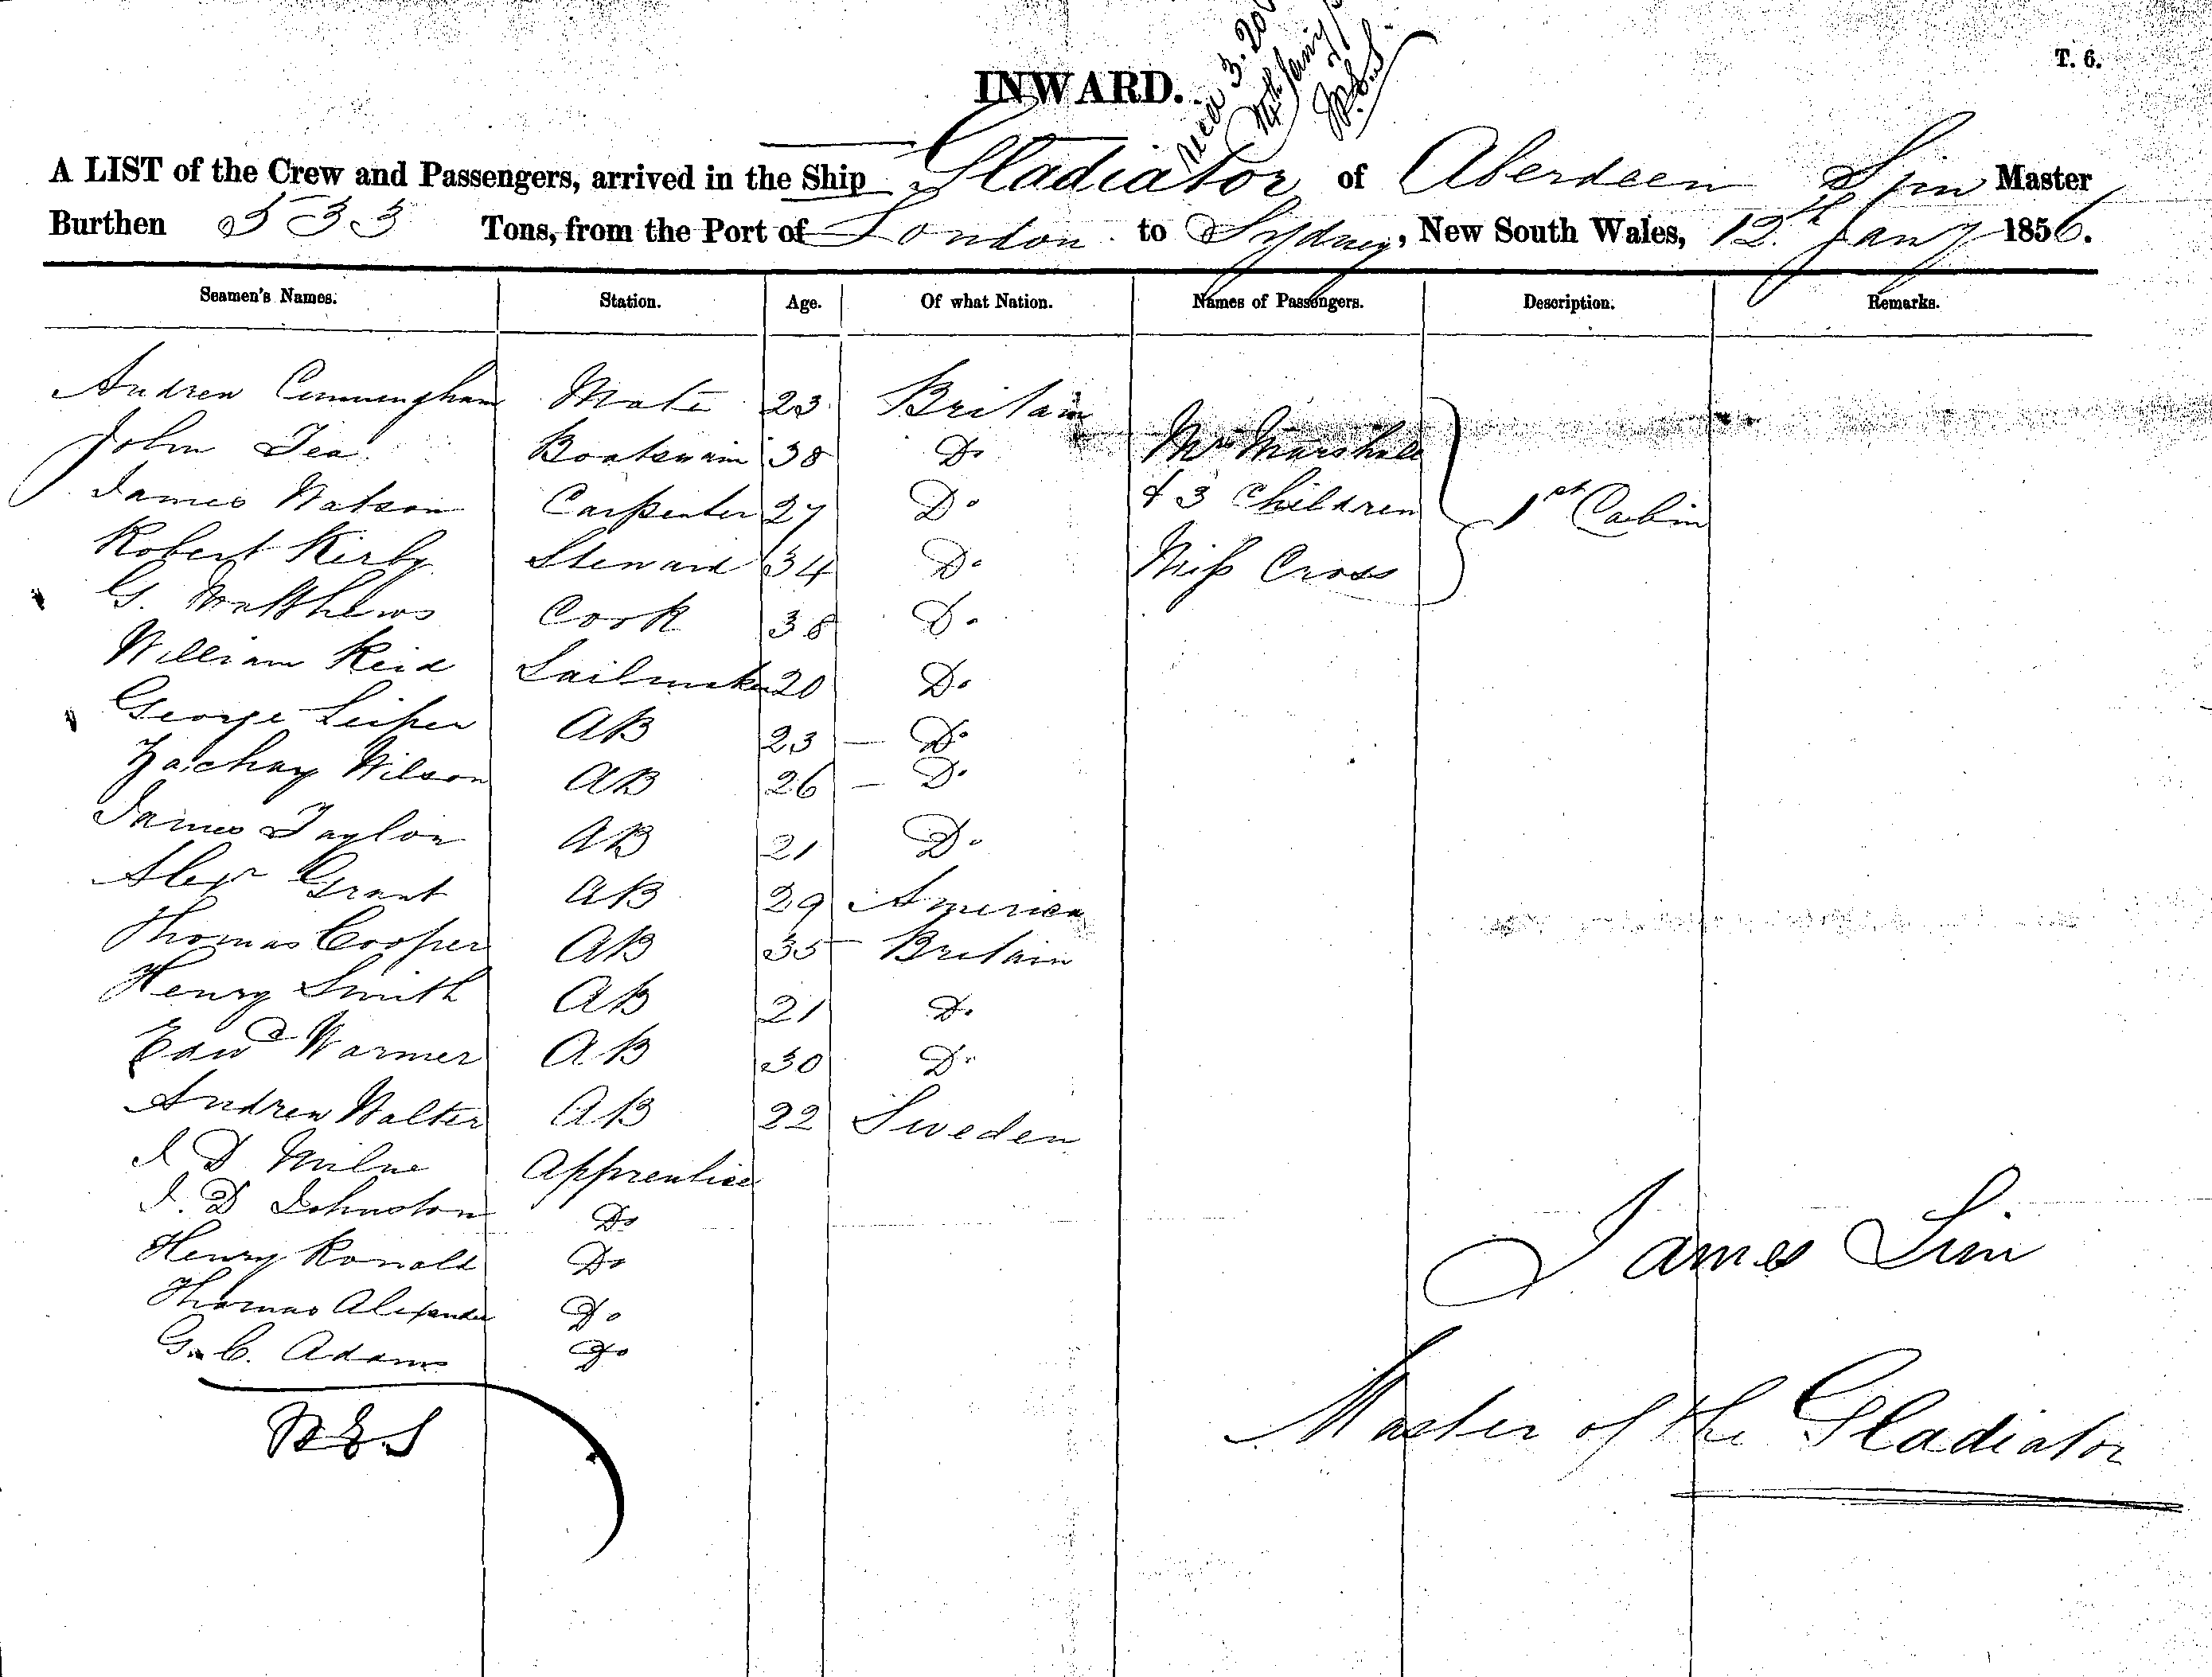 T. 6.
INWARD.
A LIST of the Crew and Passengers, arrived in the Ship Gladiator of Aberdeen Sim Master
Burthen 533 Tons, from the Port of London to Sydney, New South Wales, 12th Jany 1856.
Seamen's Names. Station. Age. Of what Nation. Names of Passengers. Description. Remarks.
Andrew Cunningham Mate 23 Britain
John Tea Boatswain 38 Do Mrs Marshall
James Watson Carpenter 27 Do & 3 Children 1st Cabin
Robert Kirby Steward 34 Do Miss Cross
G. Matthews Cook 38 Do
William Reid Sailmaker 20 Do
George Leiper AB 23 — Do
Zachay Wilson AB 26 — Do
James Taylor AB 21 Do
Alexr Grant AB 29 America
Thomas Cooper AB 35 Britain
Henry Smith AB 21 Do
Edwd Warmer AB 30 Do
Andrew Walter AB 22 Sweden
J D Milne Apprentice
J. D Johnston Do
Henry Ronald Do
Thomas Alexander Do
G. C. Adams Do
James Sim
Master of the Gladiator